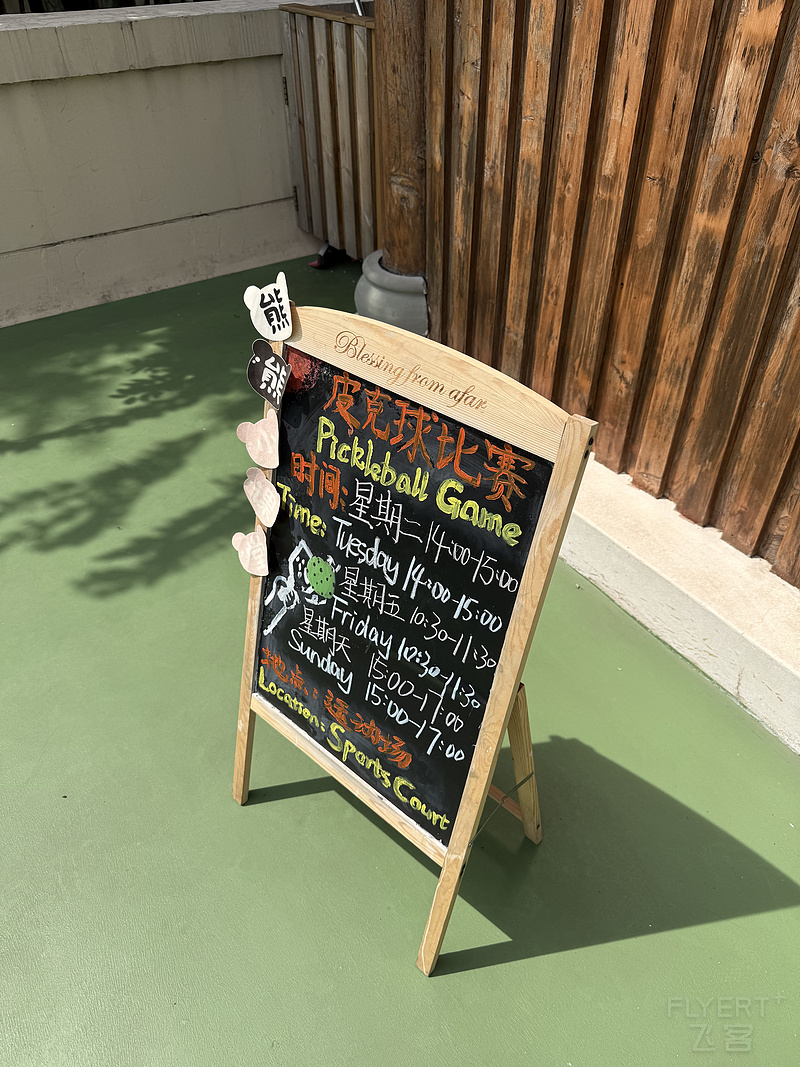 熊
熊
Blessing from afar
皮克球比赛
Pickleball Game
时间: 星期二 14:00-15:00
Time: Tuesday 14:00-15:00
星期五 10:30-11:30
Friday 10:30-11:30
星期天 15:00-17:00
Sunday 15:00-17:00
地点: 运动场
Location: Sports Court
FLYERT+
飞客